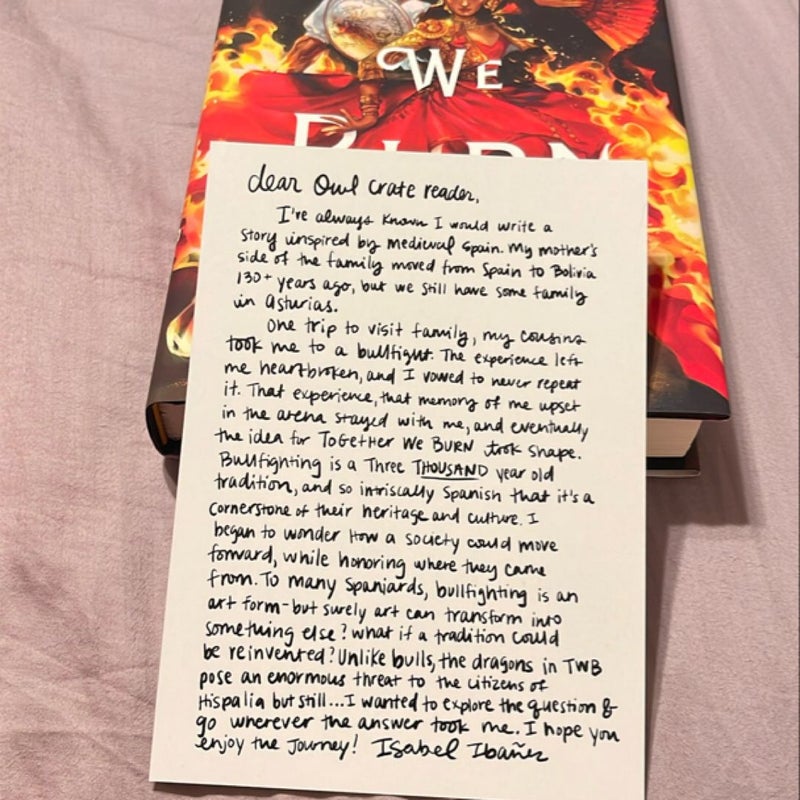 WE
BURN
dear Owl Crate reader,
I've always known I would write a
story inspired by medieval Spain. My mother's
side of the family moved from Spain to Bolivia
130+ years ago, but we still have some family
in Asturias.
One trip to visit family, my cousins
took me to a bullfight. The experience left
me heartbroken, and I vowed to never repeat
it. That experience, that memory of me upset
in the arena stayed with me, and eventually
the idea for TOGETHER WE BURN took shape.
Bullfighting is a Three THOUSAND year old
tradition, and so intriscally Spanish that it's a
cornerstone of their heritage and culture. I
began to wonder how a society could move
forward, while honoring where they came
from. To many Spaniards, bullfighting is an
art form - but surely art can transform into
something else? What if a tradition could
be reinvented? Unlike bulls, the dragons in TWB
pose an enormous threat to the citizens of
Hispalia but still... I wanted to explore the question &
go wherever the answer took me. I hope you
enjoy the journey! Isabel Ibañez